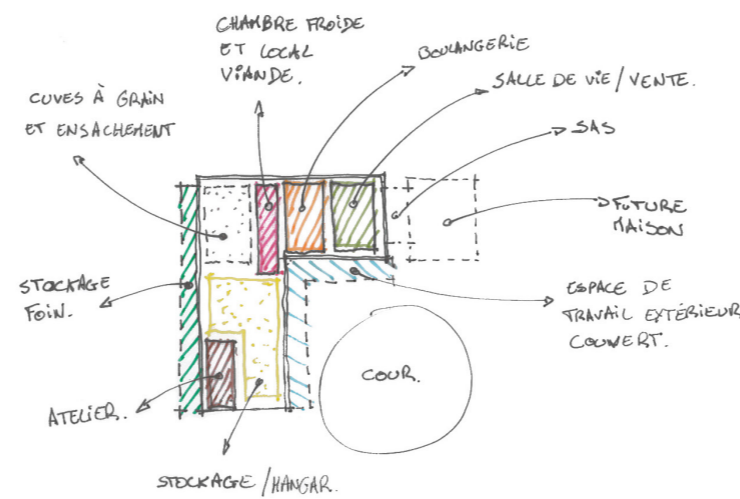 CHAMBRE FROIDE
ET LOCAL
VIANDE.
BOULANGERIE
SALLE DE VIE / VENTE.
SAS
CUVES À GRAIN
ET ENSACHEMENT
FUTURE
MAISON
STOCKAGE
FOIN.
ESPACE DE
TRAVAIL EXTÉRIEUR
COUVERT.
COUR.
ATELIER.
STOCKAGE / HANGAR.